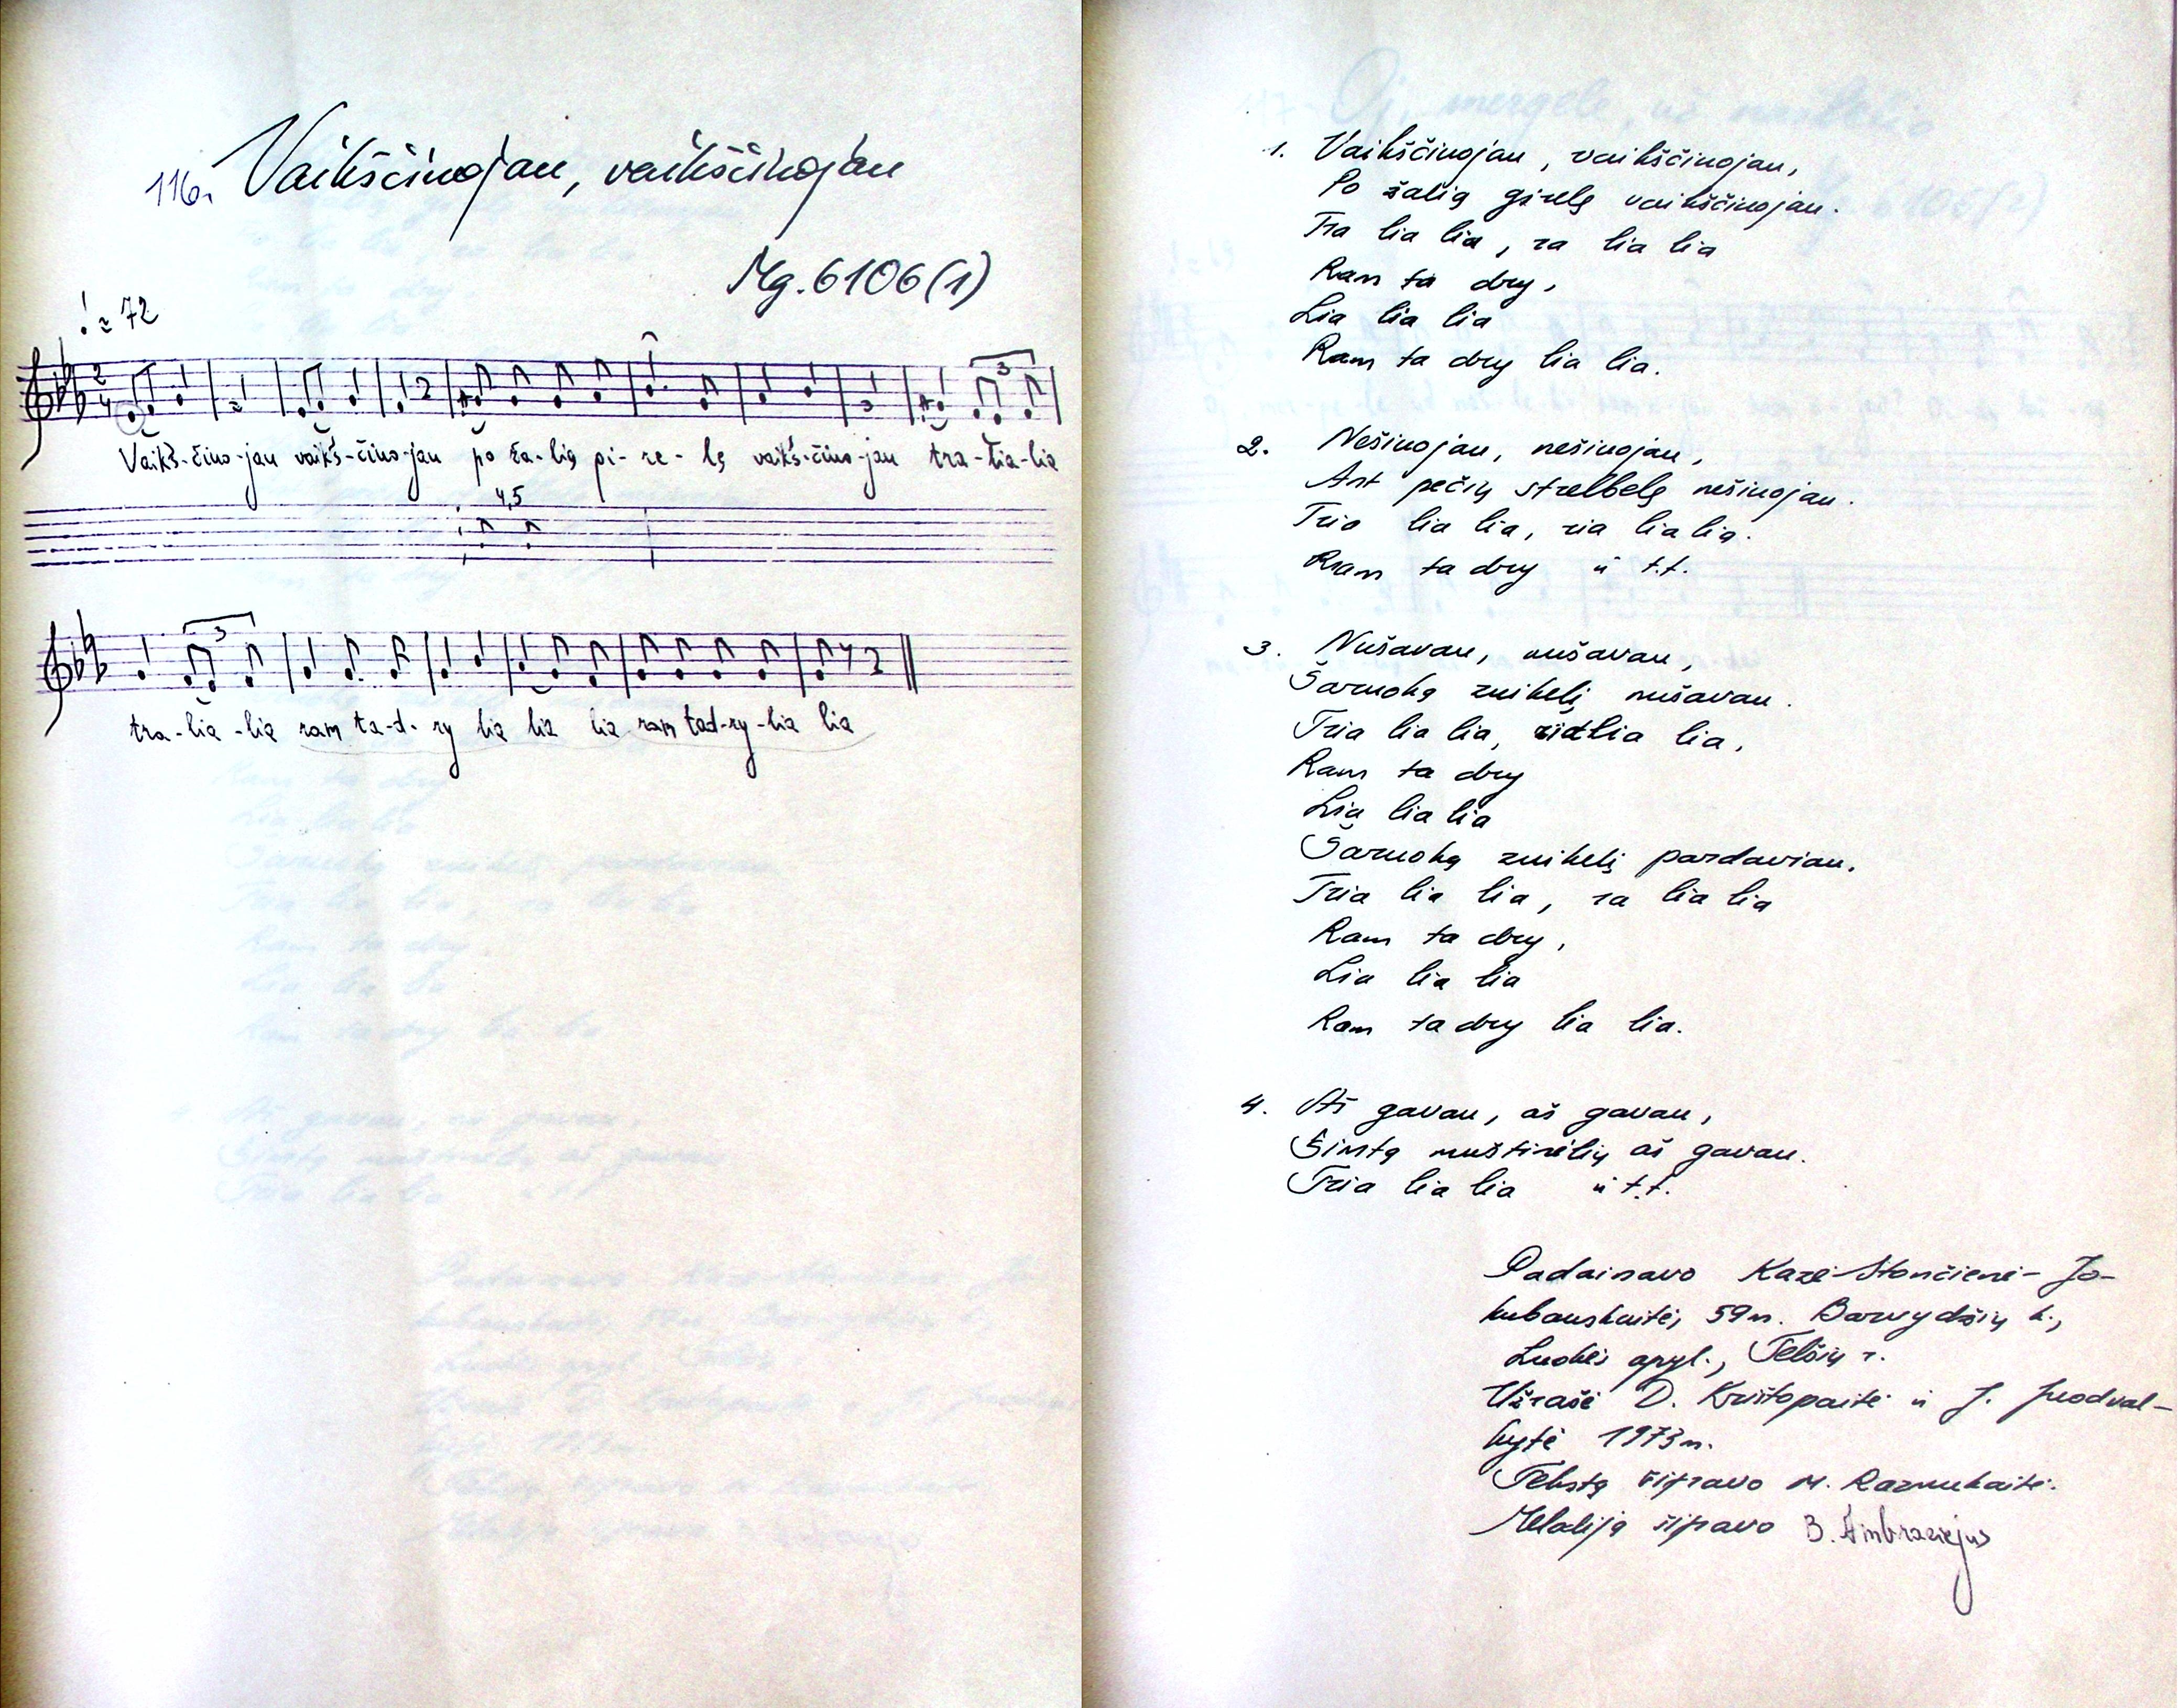 116. Vaikščinojau, vaikščinojau
Mg. 6106(1)
♩ = 72
Vaikš-čino-jau vaikš-čino-jau po ža-lią gi-re-lę vaikš-čino-jau tra-lia-lia
4,5
tra-lia-lia ram ta-d-ry lia lia lia ram tad-ry-lia lia
1. Vaikščinojau, vaikščinojau,
Po žalią girelę vaikščinojau.
Tra lia lia, ra lia lia
Ram ta dry,
Lia lia lia
Ram ta dry lia lia.
2. Nešinojau, nešinojau,
Ant pečių strelbelę nešinojau.
Tria lia lia, ria lia lia.
Ram ta dry ir t.t.
3. Nušavau, nušavau,
Šarnoką zuikelį nušavau.
Tria lia lia, lia lia,
Ram ta dry
Lia lia lia
Šarnoką zuikelį pardaviau.
Tria lia lia, ra lia lia
Ram ta dry,
Lia lia lia
Ram ta dry lia lia.
4. Aš gavau, aš gavau,
Šimtą muštinėlių aš gavau.
Tria lia lia ir t.t.
Padainavo Kazė Stončienė-Ja-
kubauskaitė, 59 m. Barvydžių k.,
Luokės apyl., Telšių r.
Užrašė D. Krištopaitė ir J. Juodval-
kytė 1973 m.
Tekstą šifravo M. Razmukaitė.
Melodiją šifravo B. Ambraziejus